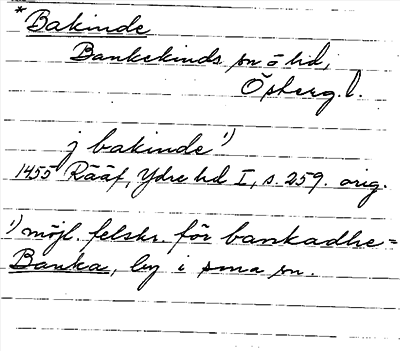 * Bakinde
Bankekinds sn o hd,
Östergötl.
j bakinde 1)
1455 Rääf, Ydre hd I, s. 259. orig.
1) möjl. felskr. för bankadhe =
Banka, by i sma sn.